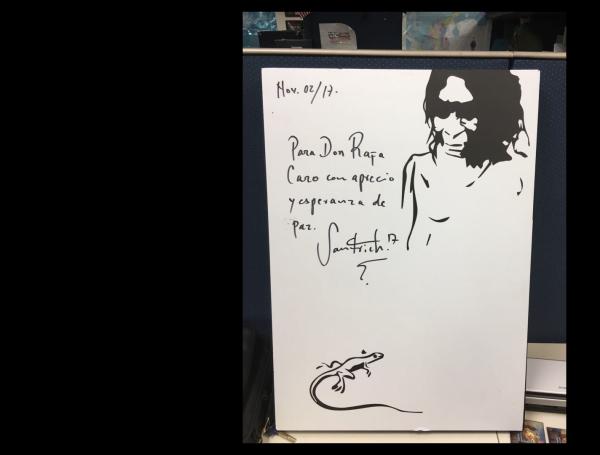 Nov. 02/17.
Para Don Rafa
Caro con aprecio
y esperanza de
paz.
Santrich. 17